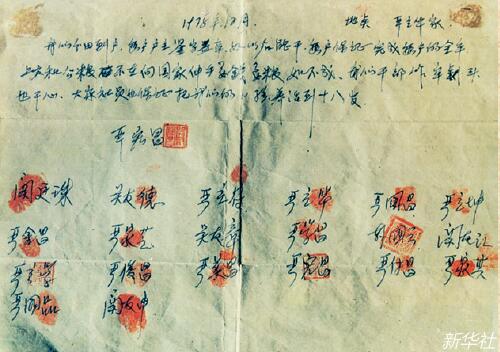 1978年12月 地点 严立华家
我们分田到户,每户户主签字盖章,如以后能干,每户保证完成每户的全年
上交和公粮 不在向国家伸手要钱要粮,如不成,我们干部作牢
也干心,大家社员也保证把我们的小孩养活到十八岁
严宏昌
关廷珠 关友德 严立符 严立华 严国昌 严立坤
严金昌 严家芝 关友章 严学昌 韩国云 关友江
严立学 严俊昌 严美昌 严宏昌 严付昌 严家其
严国品 关友申
新华社